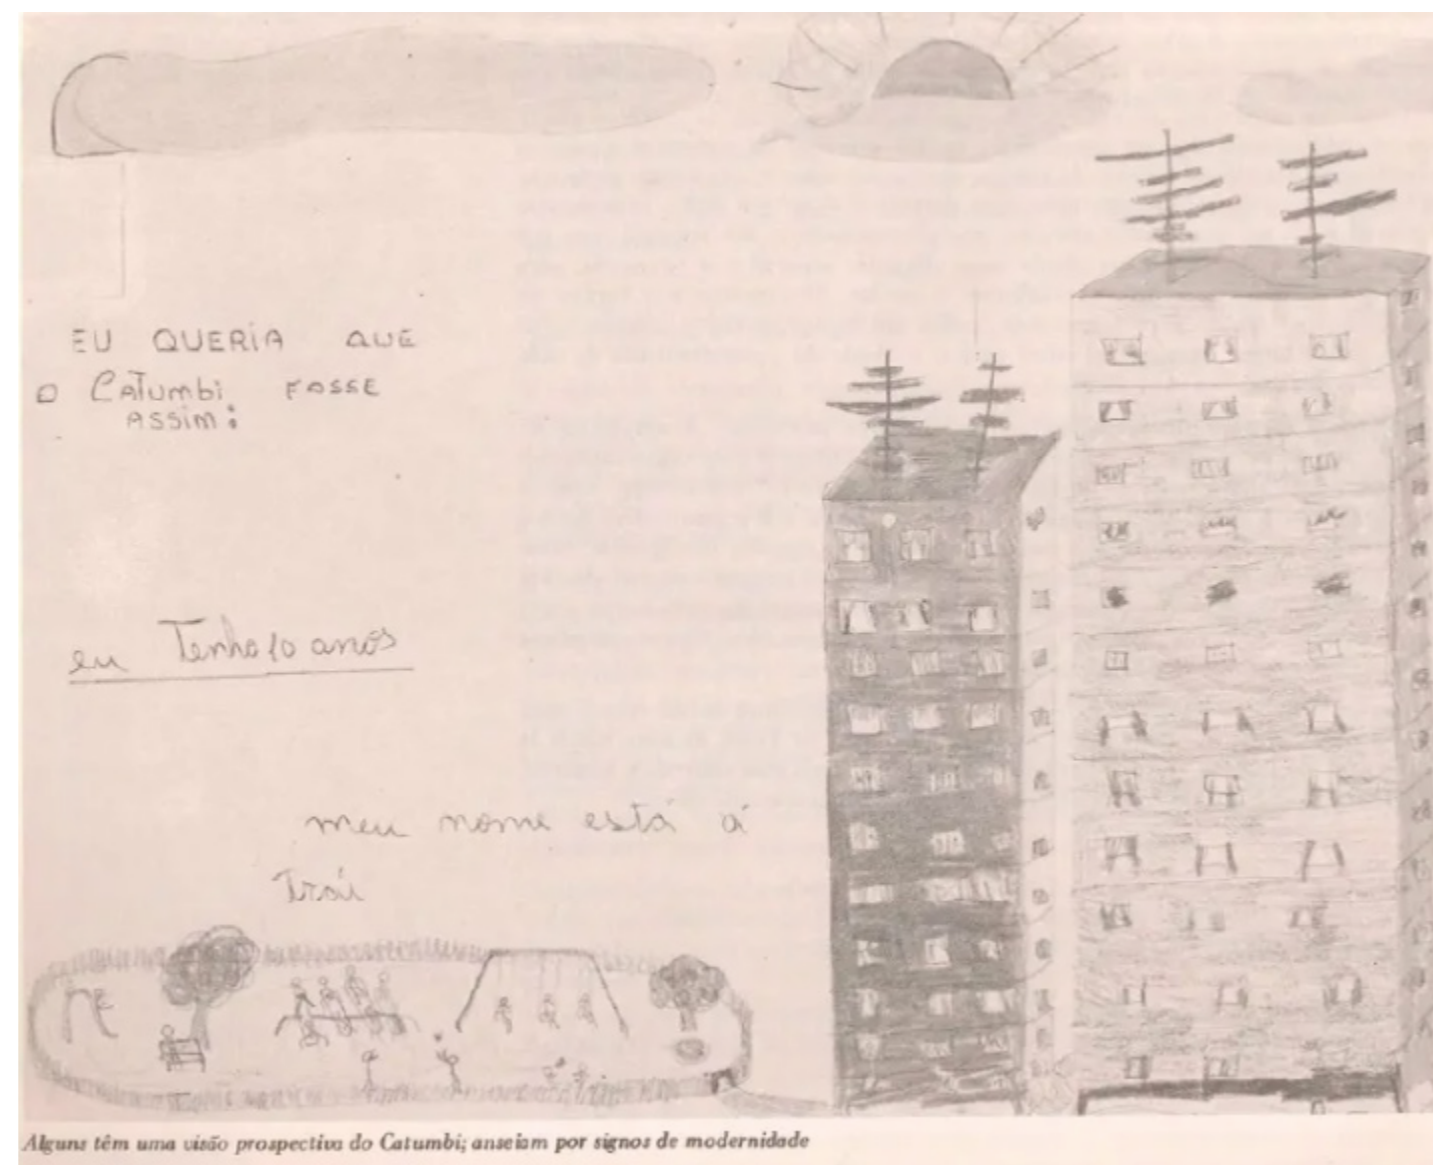 EU QUERIA QUE
O CATumbi FOSSE
ASSim:
eu Tenho 10 anos
meu nome está á
Trás
Alguns têm uma visão prospectiva do Catumbi; anseiam por signos de modernidade